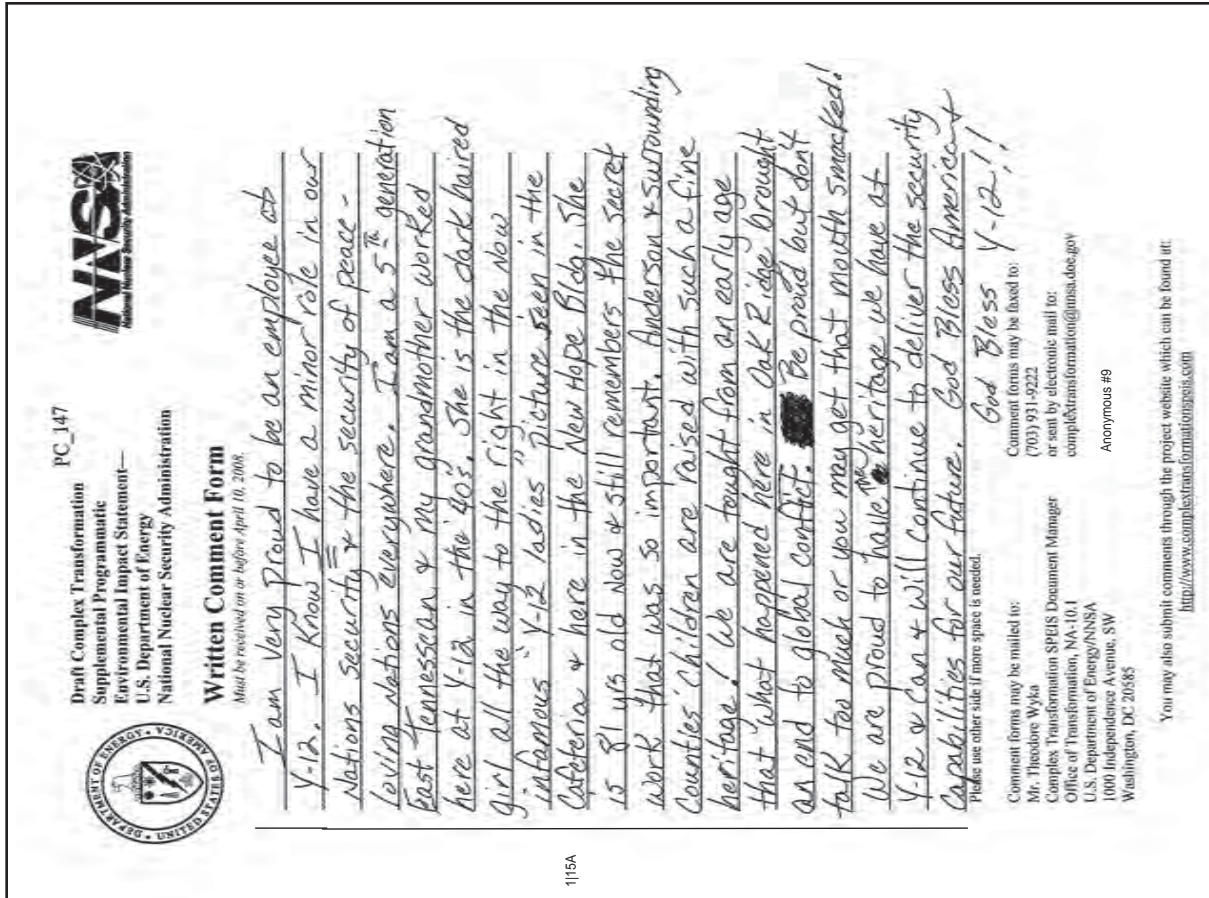 PC_147
Draft Complex Transformation
Supplemental Programmatic
Environmental Impact Statement—
U.S. Department of Energy
National Nuclear Security Administration
DEPARTMENT OF ENERGY • UNITED STATES OF AMERICA
NNSA
National Nuclear Security Administration
Written Comment Form
Must be received on or before April 10, 2008.
I am Very Proud to be an employee at
Y-12. I Know I have a minor role in our
Nations security & the security of peace-
loving nations everywhere. I am a 5th generation
East Tennesseean & my grandmother worked
here at Y-12 in the 40s. She is the dark haired
girl all the way to the right in the now
infamous "Y-12 ladies" Picture seen in the
Cateteria & here in the New Hope Bldg. She
is 81 yrs old now & still remembers the secret
work that was so important. Anderson & surrounding
Counties' Children are raised with such a fine
heritage! We are tought from an early age
that what happened here in Oak Ridge brought
an end to global conflict. Be proud but don't
talk too much or you may get that mouth smacked!
We are proud to have the heritage we have at
Y-12 & Can & will continue to deliver the security
Capabilities for our future. God Bless America &
God Bless Y-12!!
Please use other side if more space is needed.
Comment forms may be mailed to:
Mr. Theodore Wyka
Complex Transformation SPEIS Document Manager
Office of Transformation, NA-10.1
U.S. Department of Energy/NNSA
1000 Independence Avenue, SW
Washington, DC 20585
Comment forms may be faxed to:
(703) 931-9222
or sent by electronic mail to:
complextransformation@nnsa.doe.gov
Anonymous #9
You may also submit comments through the project website which can be found at:
http://www.complextransformationspeis.com
1|15A